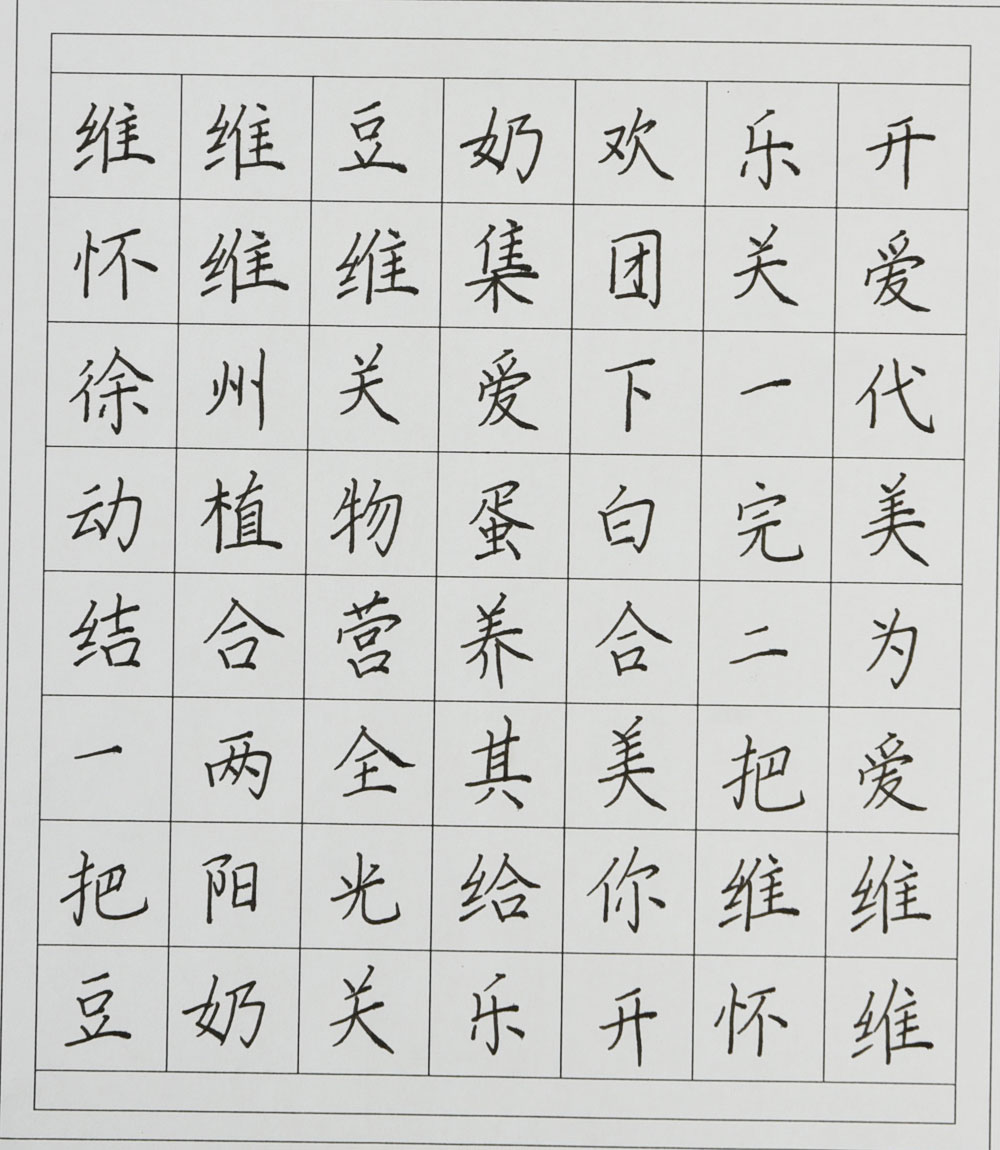 维维豆奶欢乐开
怀维维集团关爱
徐州关爱下一代
动植物蛋白完美
结合营养合二为
一两全其美把爱
把阳光给你维维
豆奶关乐开怀维